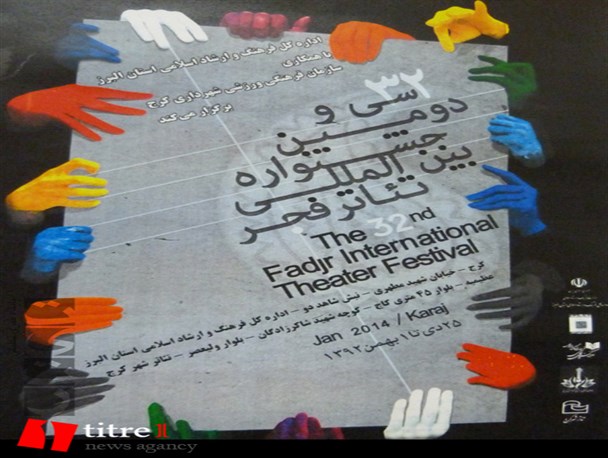 اداره کل فرهنگ و ارشاد اسلامی استان البرز
با همکاری
سازمان فرهنگی ورزشی شهرداری کرج
برگزار می‌کند
۳۲
سی و
دومین
جشنواره
بین المللی
تئاتر فجر
The 32nd
Fadjr International
Theater Festival
کرج – خیابان شهید مطهری – نبش شاهد دو – اداره کل فرهنگ و ارشاد اسلامی استان البرز
عظیمیه – بلوار ۴۵ متری کاج – کوچه شهید شاکرزادگان – بلوار ولیعصر – تئاتر شهر کرج
Jan 2014 / Karaj
۲۵ دی تا ۱ بهمن ۱۳۹۲
titre 1
news agancy